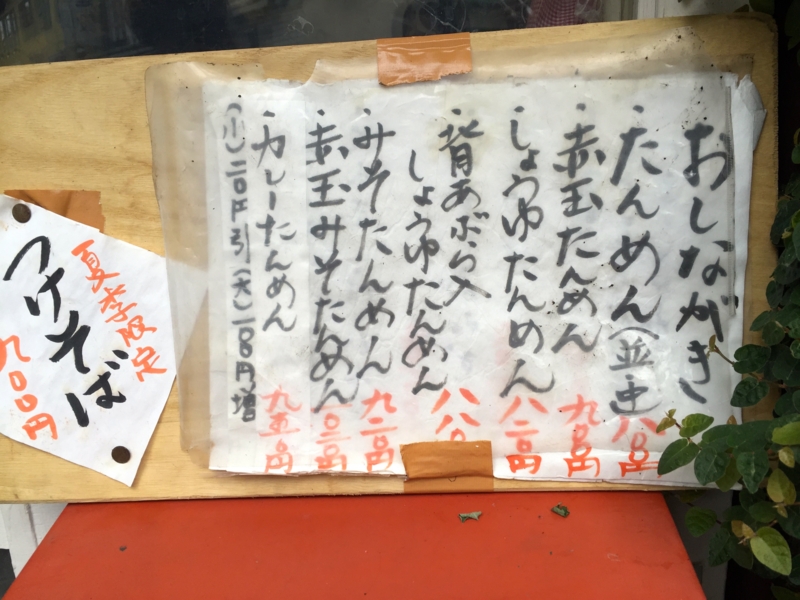 おしながき
・たんめん(並中) 八〇〇円
・赤玉たんめん 九〇〇円
・しょうゆたんめん 八二〇円
・背あぶら入
しょうゆたんめん 八八〇
・みそたんめん 九二〇円
・赤玉みそたんめん 一〇二〇円
・カレーたんめん 九五〇円
(小)二〇円引(大)一〇〇円増
夏季限定
つけそば
九〇〇円